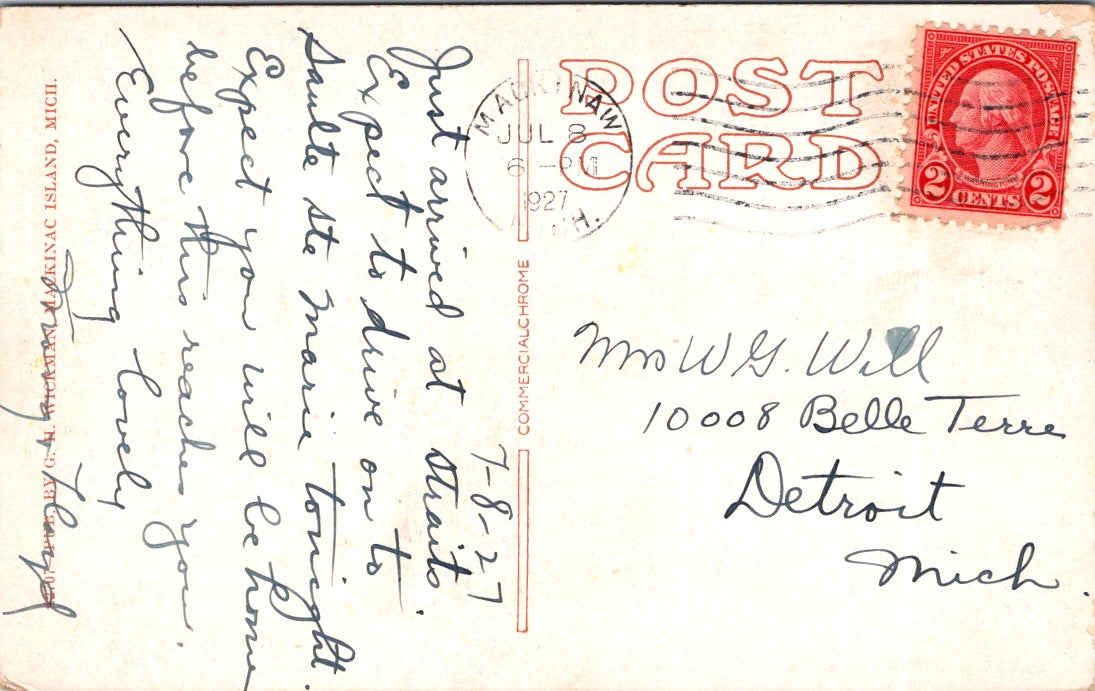 POST
CARD
MACKINAW
JUL 8
6 - PM
1927
MICH.
UNITED STATES POSTAGE
WASHINGTON
2 CENTS 2
7-8-27
Just arrived at straits.
Expect to drive on to
Saulte Ste Marie tonight.
Expect you will be home
before this reaches you.
Everything lovely
PUB. BY G. H. WICKMAN, MACKINAC ISLAND, MICH.
COMMERCIALCHROME
Mrs W G. Will
10008 Belle Terre
Detroit
Mich.